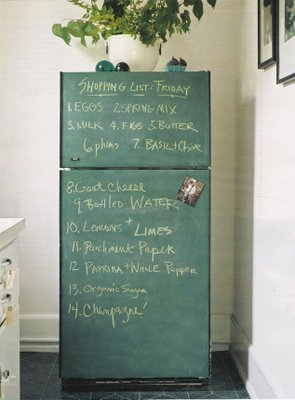 SHOPPING LIST: FRIDAY
1. EGGS 2. SPRING MIX
3. MILK 4. FIGS 5. BUTTER
6 plums 7. BASIL + Chive
8. Goat Cheese
9. Bottled WATER
10. LEMONS + LIMES
11. Parchment Paper
12 PAPRIKA + WHOLE Pepper
13. Organic Sugar
14. Champagne!